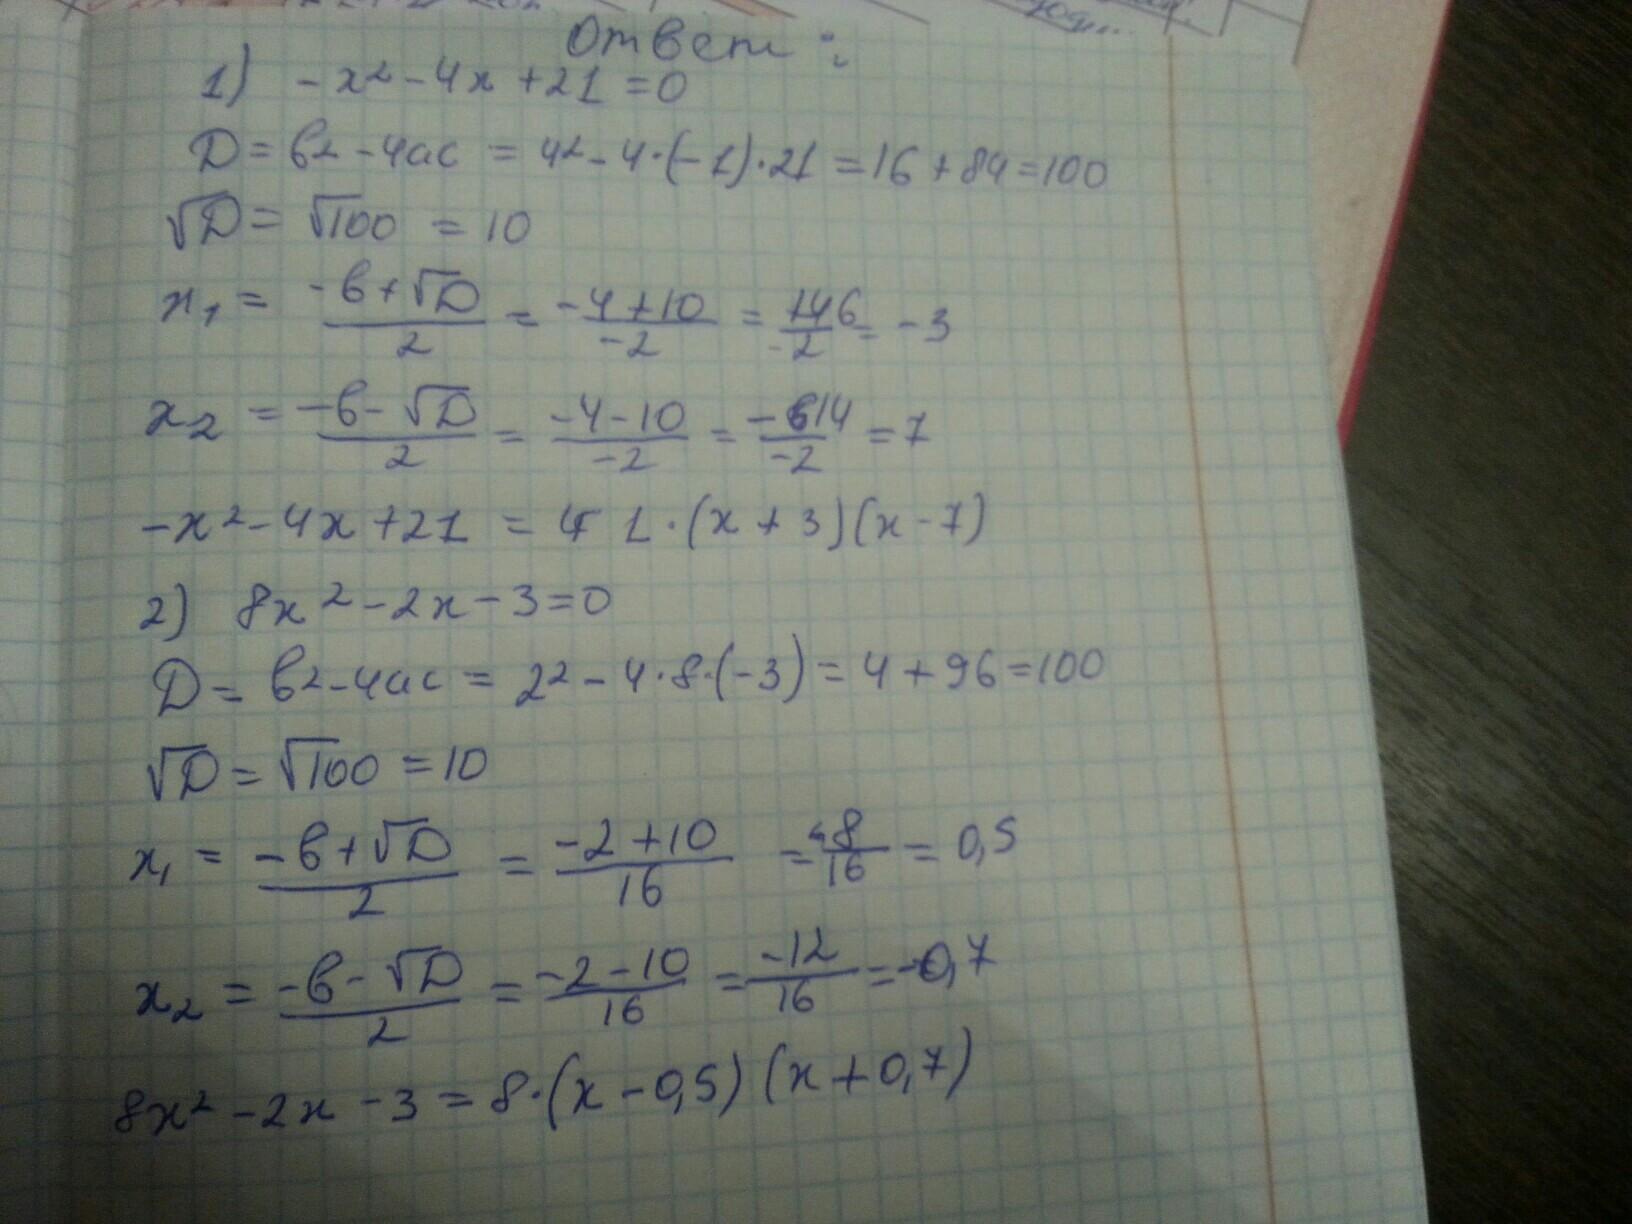 Ответ:
1) -x² - 4x + 21 = 0
D = b² - 4ac = 4² - 4·(-1)·21 = 16 + 84 = 100
√D = √100 = 10
x₁ = (-b + √D)/2 = (-4 + 10)/-2 = 6/-2 = -3
x₂ = (-b - √D)/2 = (-4 - 10)/-2 = -14/-2 = 7
-x² - 4x + 21 = 1·(x + 3)(x - 7)
2) 8x² - 2x - 3 = 0
D = b² - 4ac = 2² - 4·8·(-3) = 4 + 96 = 100
√D = √100 = 10
x₁ = (-b + √D)/2 = (-2 + 10)/16 = 8/16 = 0,5
x₂ = (-b - √D)/2 = (-2 - 10)/16 = -12/16 = -0,7
8x² - 2x - 3 = 8·(x - 0,5)(x + 0,7)